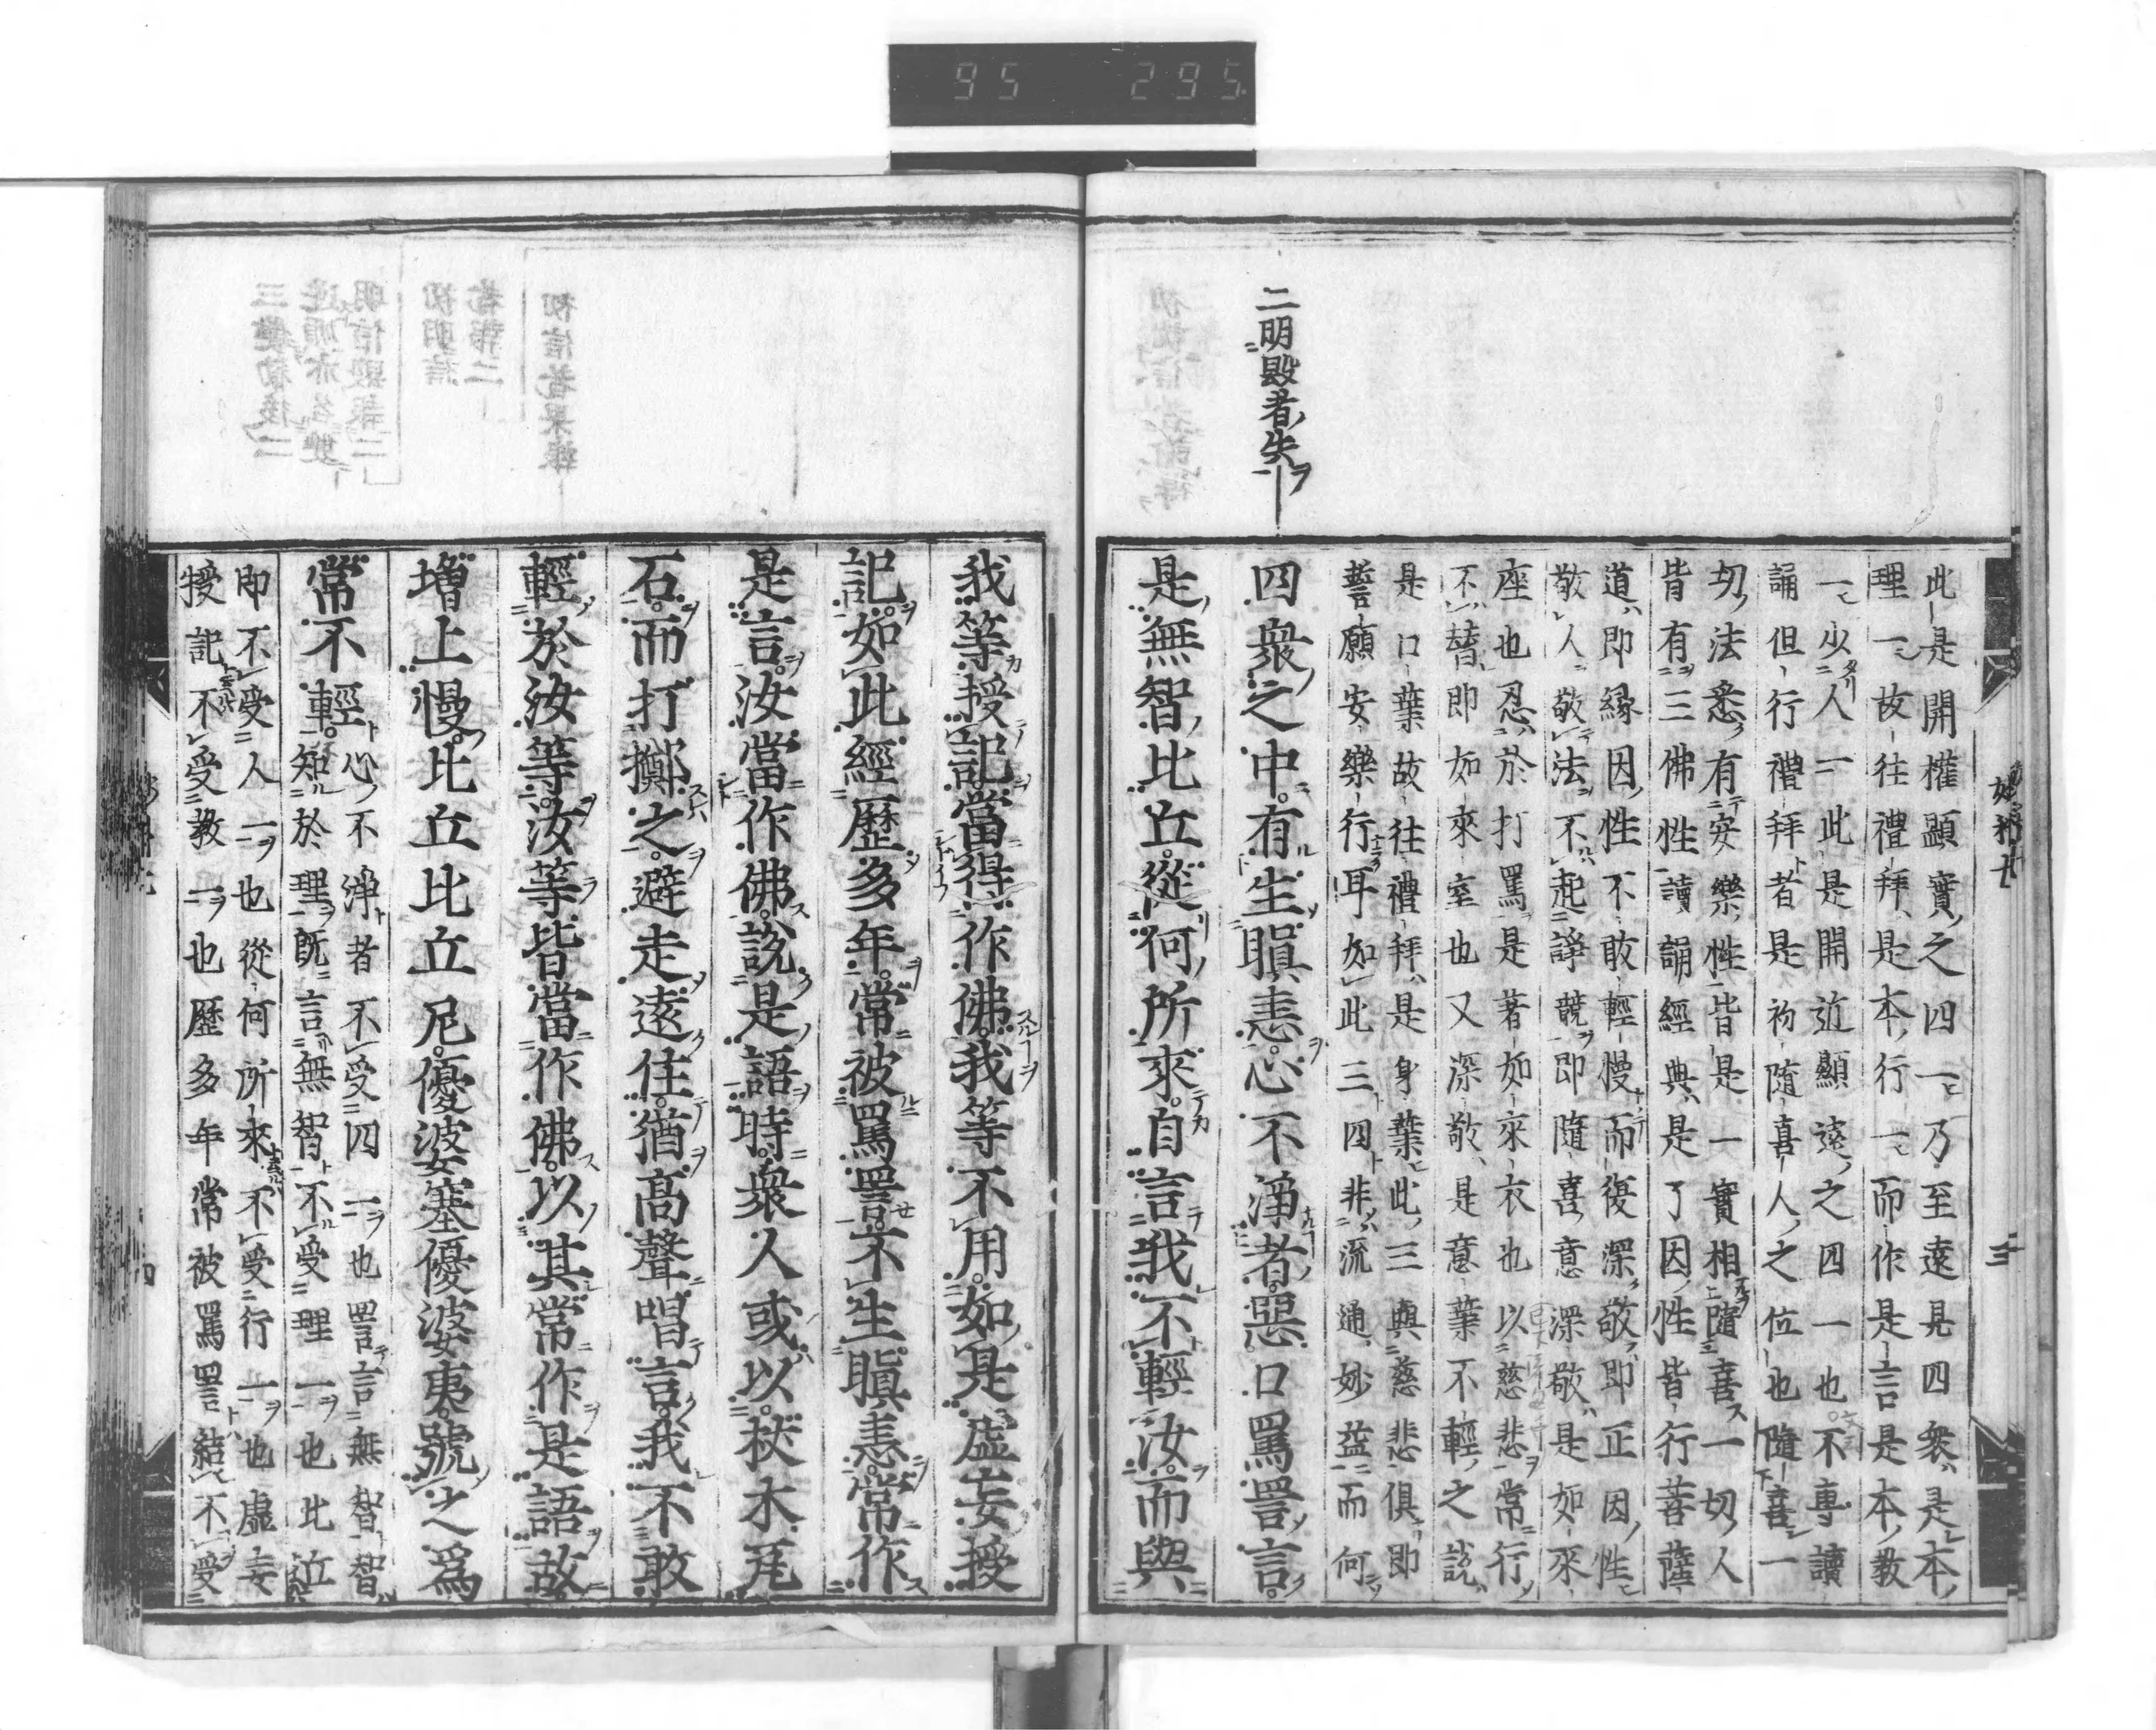 95 295
二明毀者失
此是開權顯實之四一乃至遠見四衆是本
理一故往禮拜是本行一而作是言是本教
一少人一此是開近顯遠之四一也不專讀
誦但行禮拜者是初隨喜人之位也隨喜一
切法悉有安樂性皆是一實相隨喜一切人
皆有三佛性讀誦經典是了因性皆行菩薩
道即縁因性不敢輕慢而復深敬即正因性
敬人敬法不起諍競即隨喜意深敬是如來
座也忍於打罵是著如來衣也以慈悲常行
不替即如來室也又深敬是意業不輕之說
是口業故往禮拜是身業此三與慈悲俱即
誓願安樂行耳如此三四非流通妙益而何
四衆之中有生瞋恚心不淨者惡口罵詈言
是無智比丘從何所來自言我不輕汝而與
我等授記當得作佛我等不用如是虛妄授
記如此經歷多年常被罵詈不生瞋恚常作
是言汝當作佛說是語時衆人或以杖木瓦
石而打擲之避走遠住猶高聲唱言我不敢
輕於汝等汝等皆當作佛以其常作是語故
增上慢比丘比丘尼優婆塞優婆夷號之爲
常不輕
心不淨者不受四一也詈言無智智
知於理既言無智不受理一也比丘
即不受人一也從何所來不受行一也虛妄
授記不受教一也歷多年常被罵詈結不受